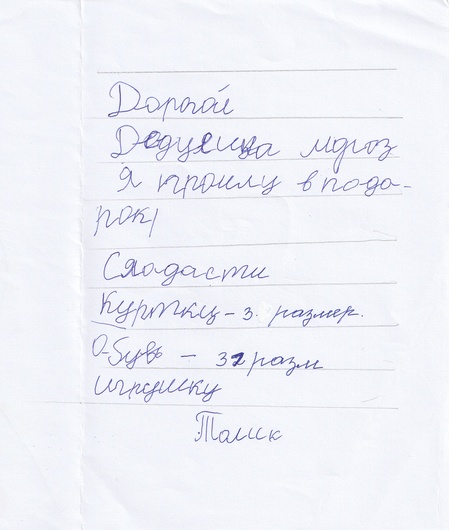 Дорогой
Дедушка мороз
Я прошу в пода-
рок,
Сладасти
Куртку - 3. размер.
Обувь - 32 разм
игрушку
Толик